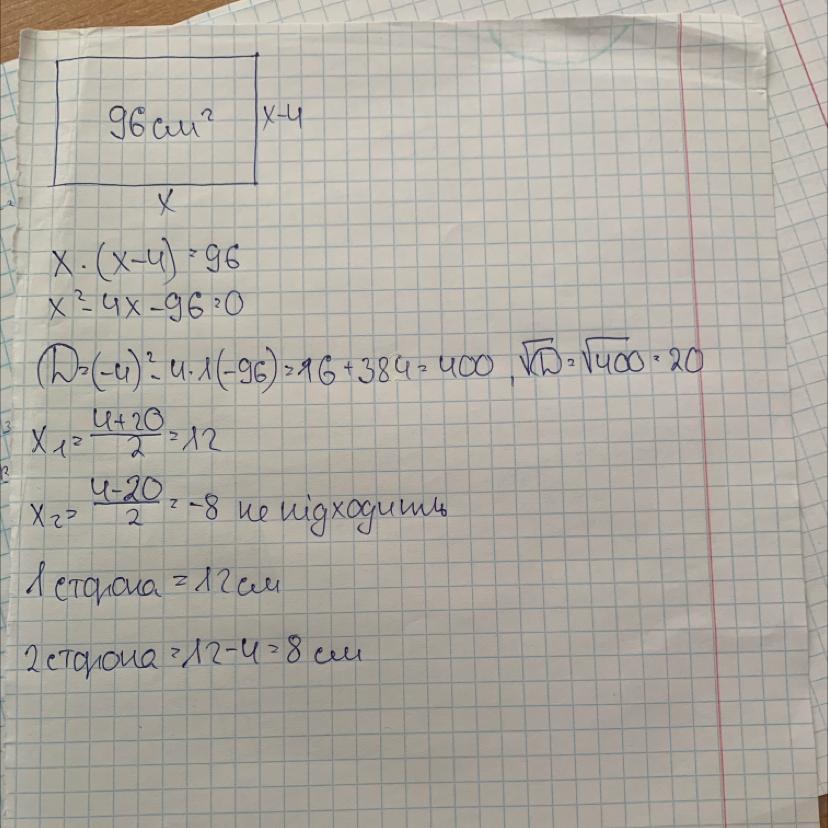 96 см²
x-4
x
x·(x-4)=96
x²-4x-96=0
D=(-4)²-4·1(-96)=16+384=400, √D=√400=20
x₁=(4+20)/2=12
x₂=(4-20)/2=-8 не підходить
1 сторона = 12 см
2 сторона = 12-4=8 см